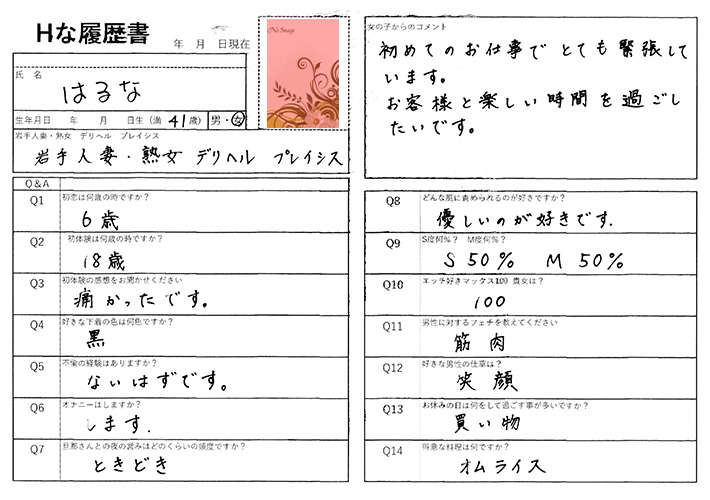 Hな履歴書
年 月 日現在
No Image
氏 名
はるな
生年月日 年 月 日生 (満 41 歳) 男・女
岩手人妻・熟女 デリヘル プレイシス
岩手人妻・熟女 デリヘル プレイシス
Q&A
Q1 初恋は何歳の時ですか?
6歳
Q2 初体験は何歳の時ですか?
18歳
Q3 初体験の感想をお聞かせください
痛かったです。
Q4 好きな下着の色は何色ですか?
黒
Q5 不倫の経験はありますか?
ないはずです。
Q6 オナニーはしますか?
します.
Q7 旦那さんとの夜の営みはどのくらいの頻度ですか?
ときどき
女の子からのコメント
初めてのお仕事でとても緊張して
います。
お客様と楽しい時間を過ごし
たいです。
Q8 どんな風に責められるのが好きですか?
優しいのが好きです.
Q9 S度何%? M度何%?
S 50% M 50%
Q10 エッチ好きマックス100 貴女は?
100
Q11 男性に対するフェチを教えてください
筋肉
Q12 好きな男性の仕草は?
笑顔
Q13 お休みの日は何をして過ごす事が多いですか?
買い物
Q14 得意な料理は何ですか?
オムライス